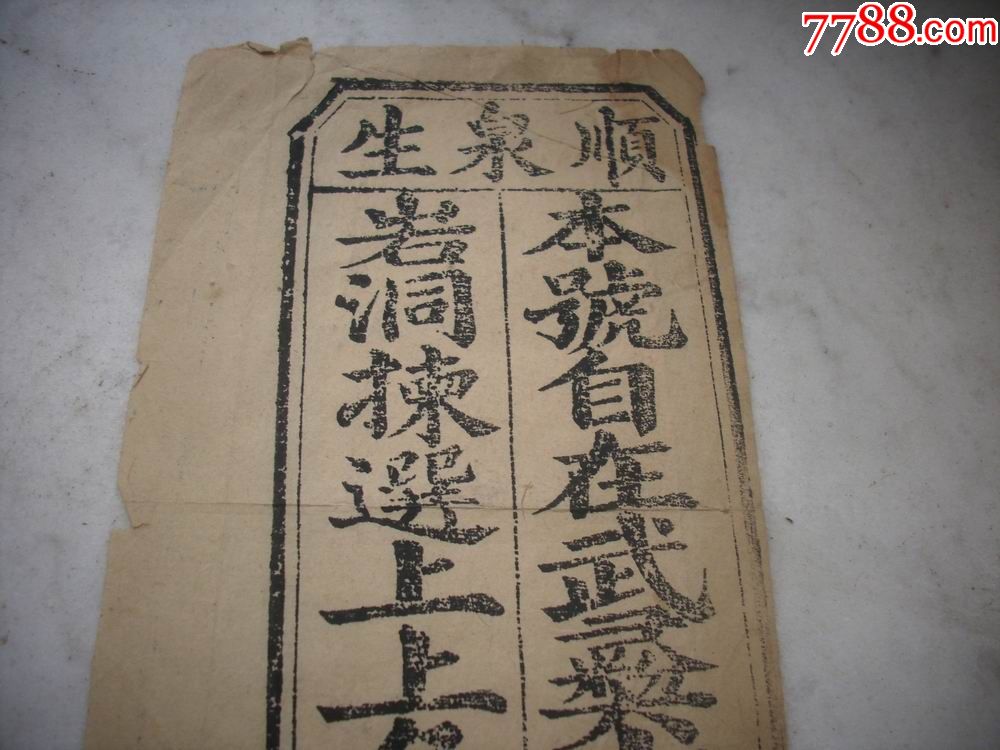 7788.com
順泉生
本號自在武
岩洞揀選上上